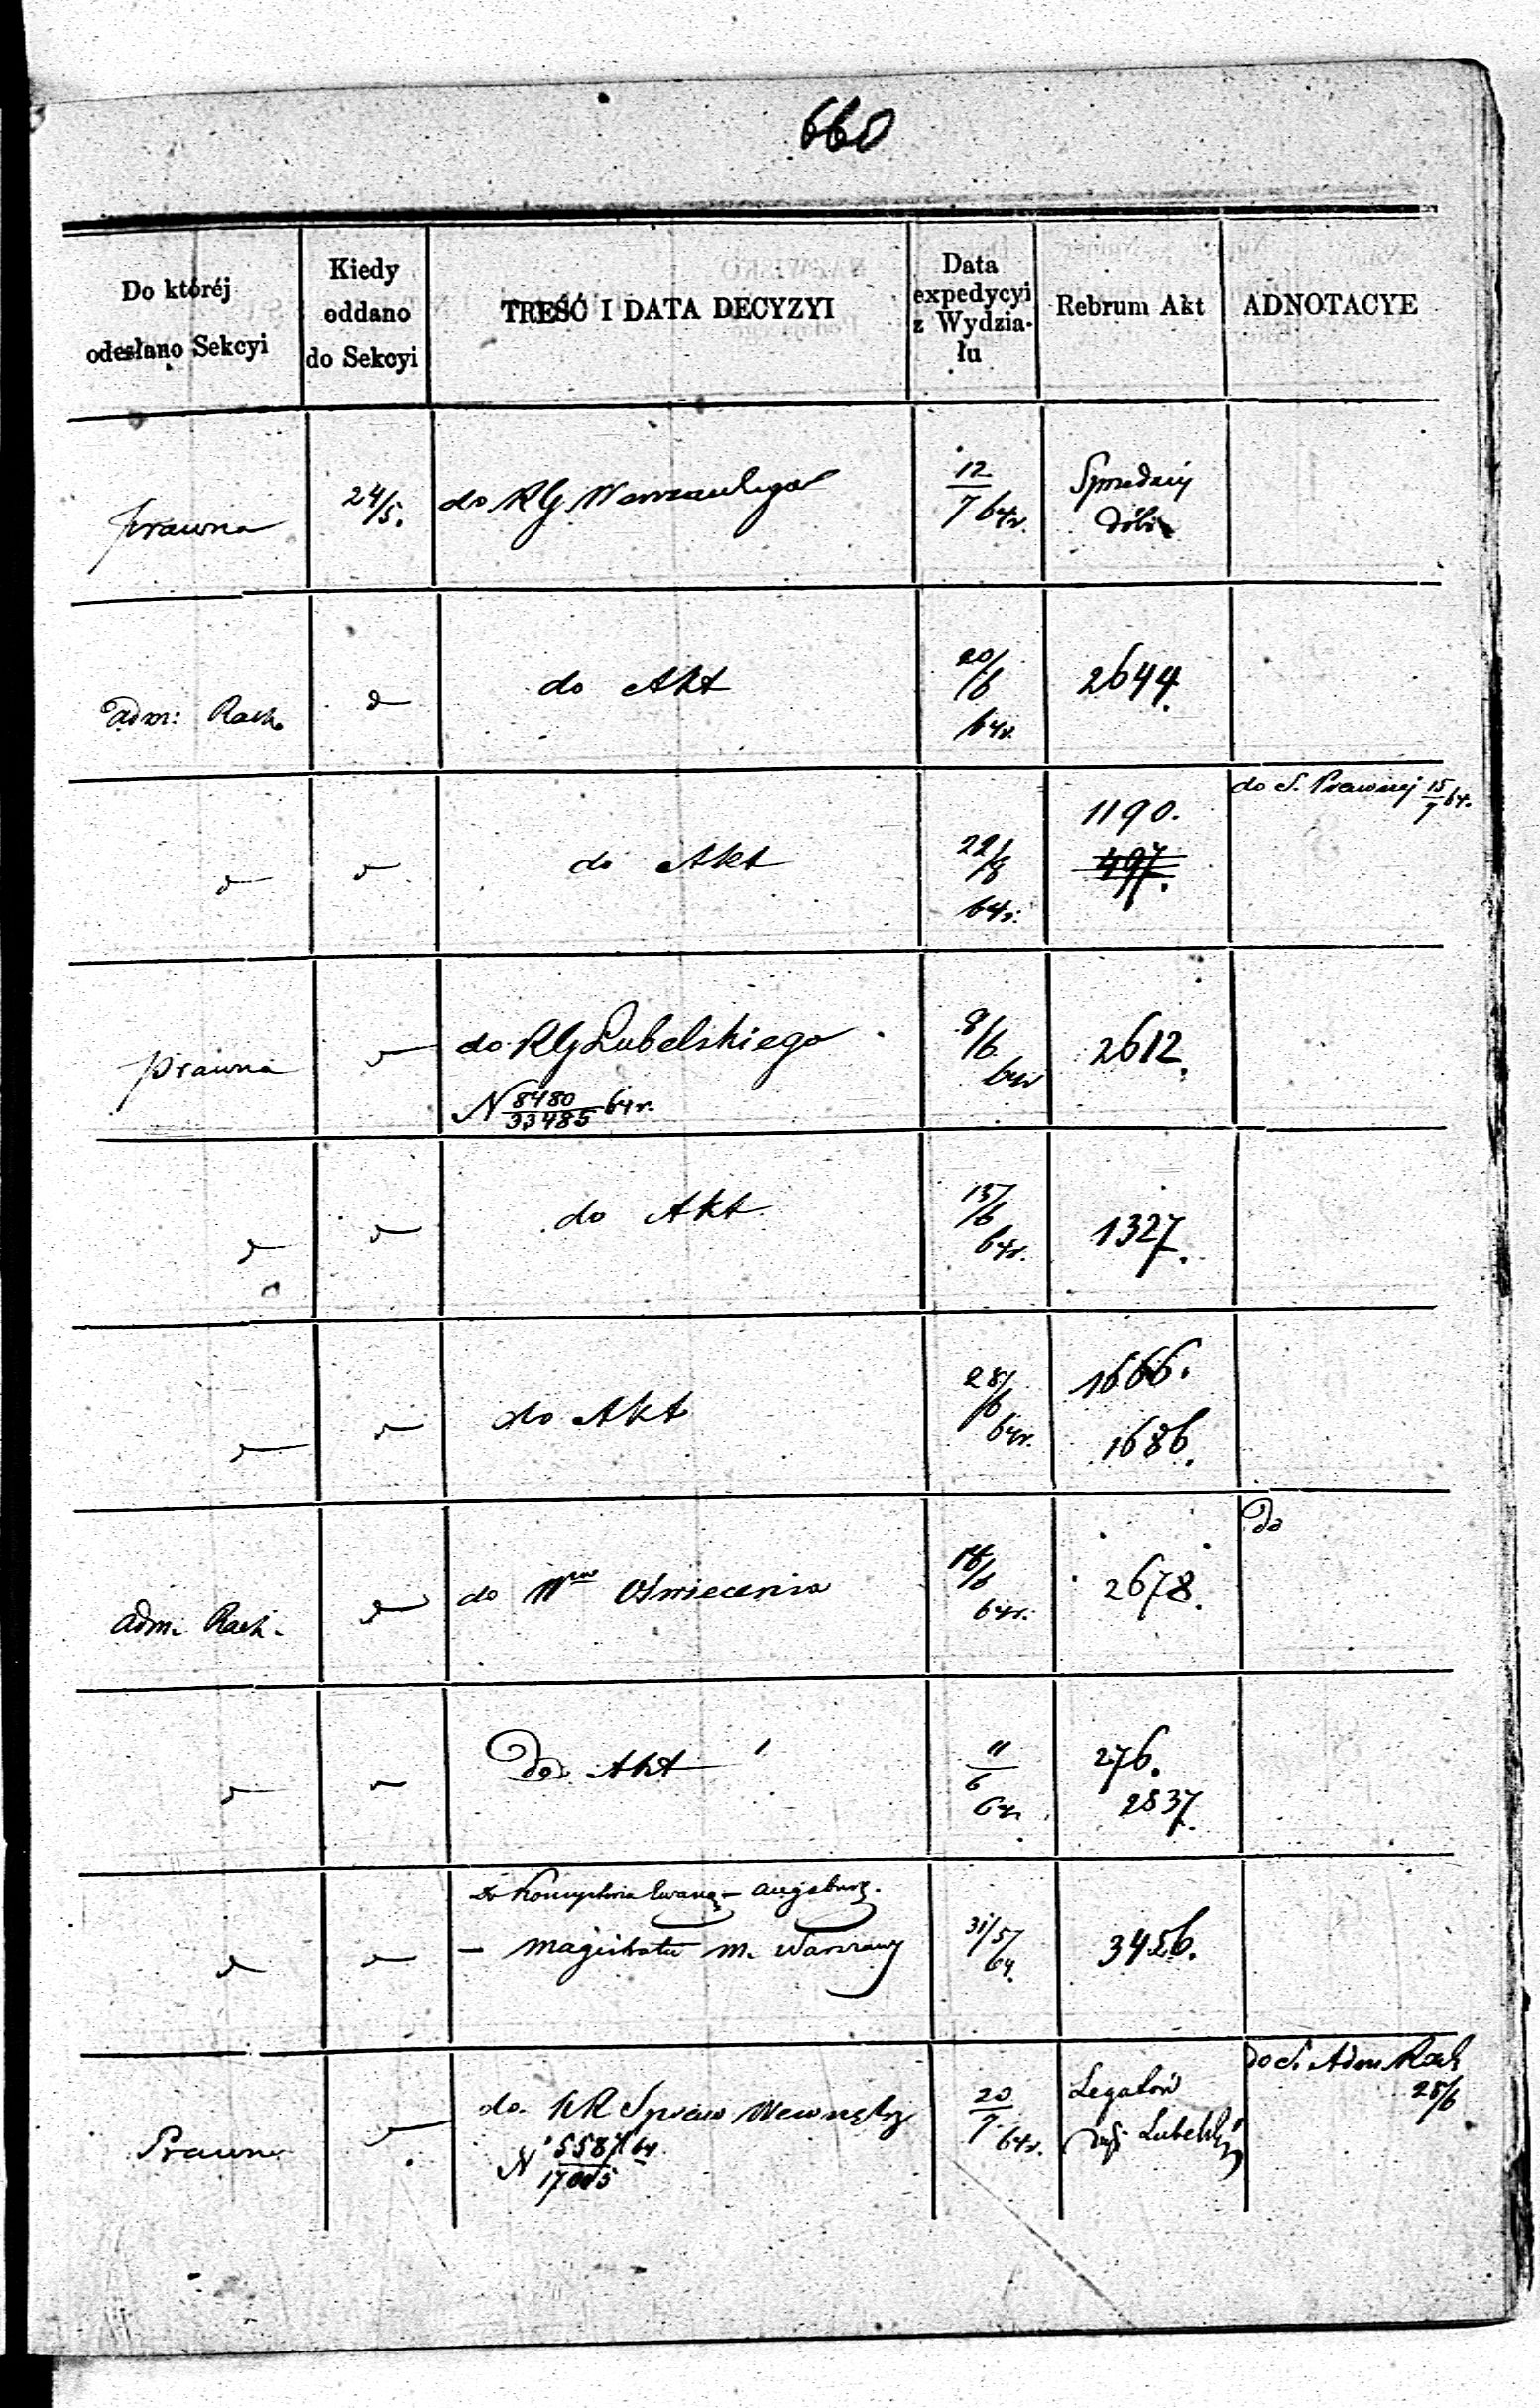 660
Do któréj
odesłano Sekcyi
Kiedy
oddano
do Sekcyi
TREŚĆ I DATA DECYZYI
Data
expedycyi
z Wydzia-
łu
Rebrum Akt
ADNOTACYE
Prawna
24/5.
do RG Warszawskiego
12/7 64r.
Sprzedaży
dóbr
Adm: Rach.
do Akt
20/6
64r.
2644.
do Akt
22/8
64r.
1190.
497.
do S. Prawnej 15/7 64.
Prawna
do RG Lubelskiego
N 8480/33485 64r.
8/6
64r
2612.
do Akt
15/6
64r.
1327.
do Akt
28/6
64r.
1666.
1686.
Adm. Rach.
do Wru Oświecenia
64r.
2678.
Do
Do Akt
11/6
64r
276.
2837.
Do Konsystorza Ewang-Augsburg.
- Magistratu m. Warszawy
31/5
64.
3456.
Prawna
do KR Spraw Wewnętrz
N 5587/17005 64
20/7 64r.
Legatów
Lubelskiej
do S. Adm Rach
25/6